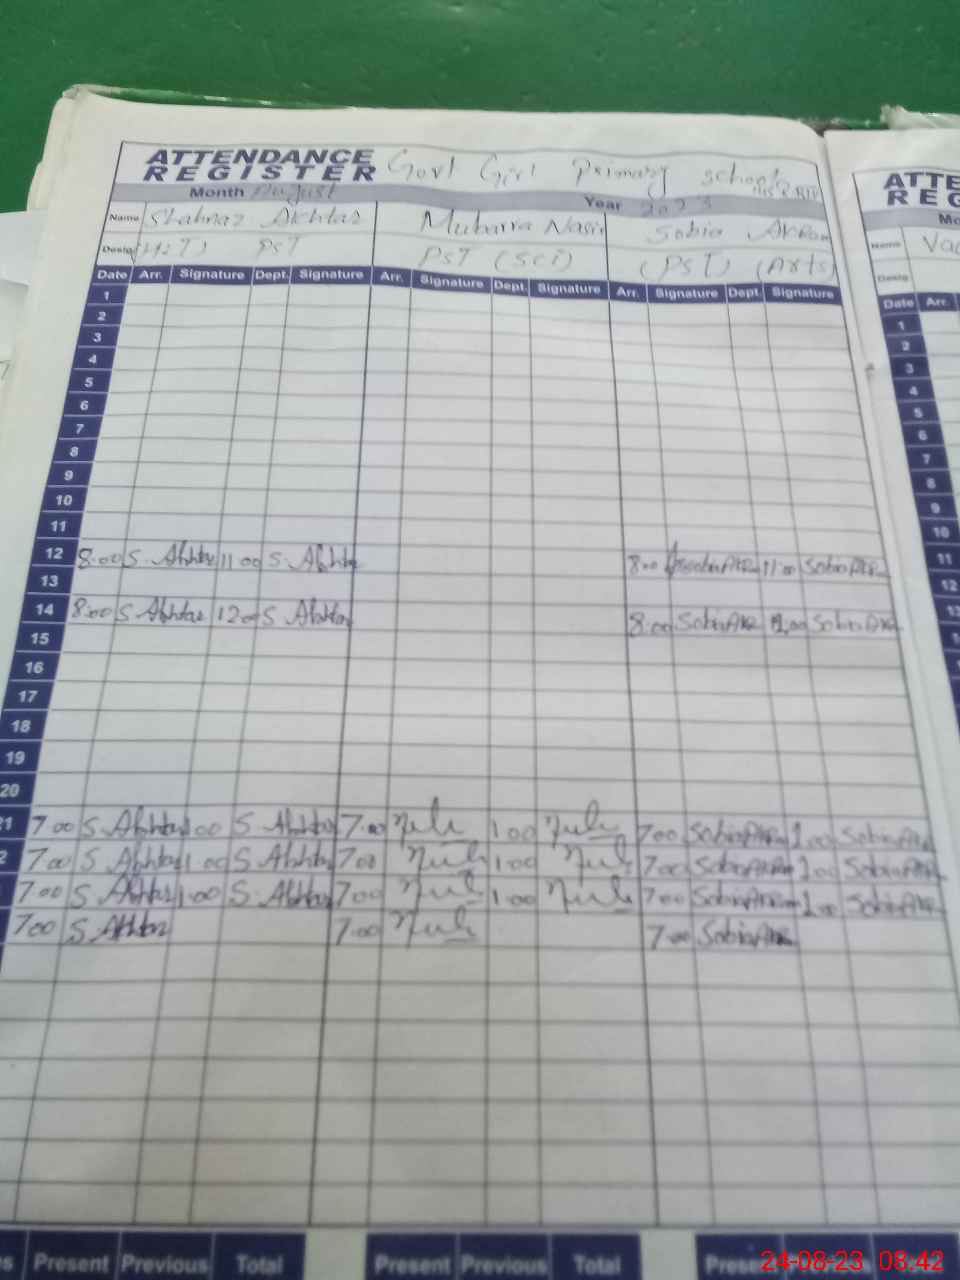 ATTENDANCE REGISTER Govt Girl Primary School
Month August Year 2023
Name Shahnaz Akhtar Mubarra Nasir Sobia Akram
Desig (H.T) PST PST (Sci) (PST) (Arts)
Date Arr. Signature Dept. Signature Arr. Signature Dept. Signature Arr. Signature Dept. Signature
1
2
3
4
5
6
7
8
9
10
11
12 8:00 S. Akhtar 11:00 S. Akhtar 8:00 11:00
13
14 8:00 S. Akhtar 12:00 S. Akhtar 8:00
15
16
17
18
19
20
21 7:00 S. Akhtar 1:00 S. Akhtar 7:00 1:00 7:00 1:00
2 7:00 S. Akhtar 1:00 S. Akhtar 7:00 1:00 7:00 1:00
7:00 S. Akhtar 1:00 S. Akhtar 7:00 1:00 7:00 1:00
7:00 S. Akhtar 7:00 7:00
s Present Previous Total Present Previous Total Prese
ATTE
REG
Mo
Name Va
Desig
Date Arr.
1
2
3
4
5
6
7
8
9
10
11
12
24-08-23 08:42